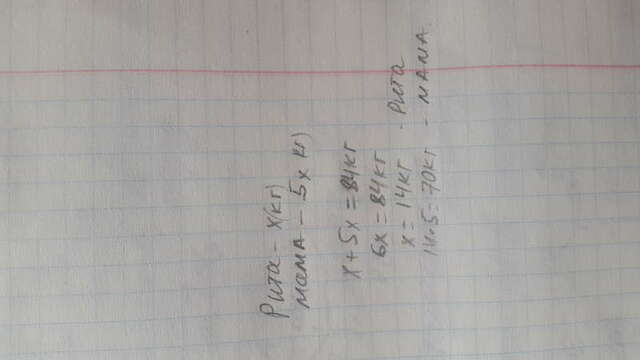 Рита - х(кг)
мама - 5х кг)
х + 5х = 84кг
6х = 84кг
х = 14кг - Рита
14•5 = 70кг - МАМА